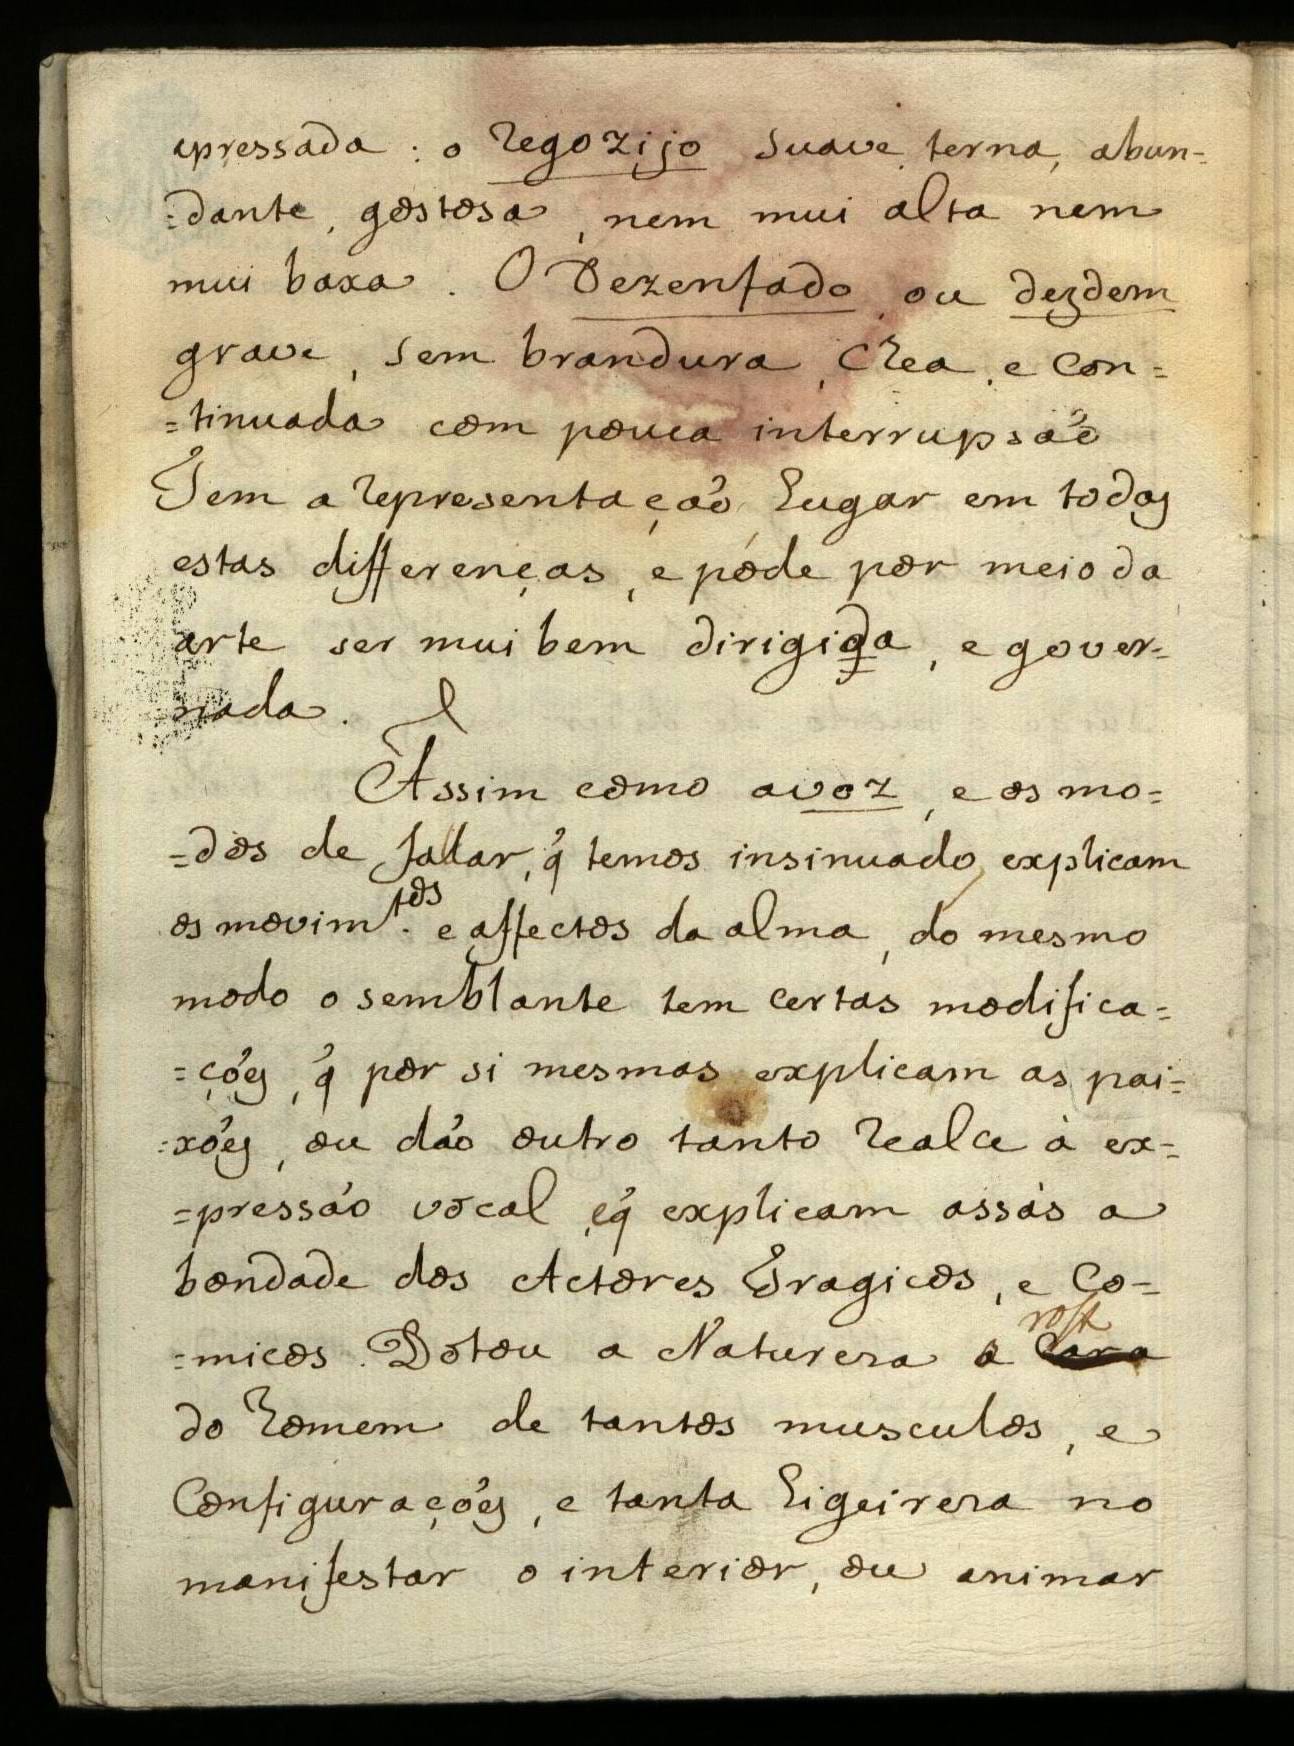 apressada : o regozijo suave terna, abun=
=dante, gostosa, nem mui alta nem
mui baxa. O Dezenfado, ou dezdem
grave, sem brandura, e con=
=tinuada com pouca interrupsaõ
Tem a representaçaõ lugar em todas
estas differenças, e póde por meio da
arte ser mui bem dirigida, e gover=
nada.
Assim como a voz, e os mo=
=dos de fallar, q̃ temos insinuado, explicam
os movim.tos e affectos da alma, do mesmo
modo o semblante tem certas modifica=
=çoẽs, q̃ por si mesmas explicam as pai=
=xoẽs, ou daõ outro tanto realce à ex=
=pressaõ vocal, e q̃ explicam assás a
bondade dos Actores Tragicos, e Co=
rost
=micos. Dotou a Natureza a Cara
do homem de tantos musculos, e
Configuraçoẽs, e tanta ligeireza no
manifestar o interior, ou animar